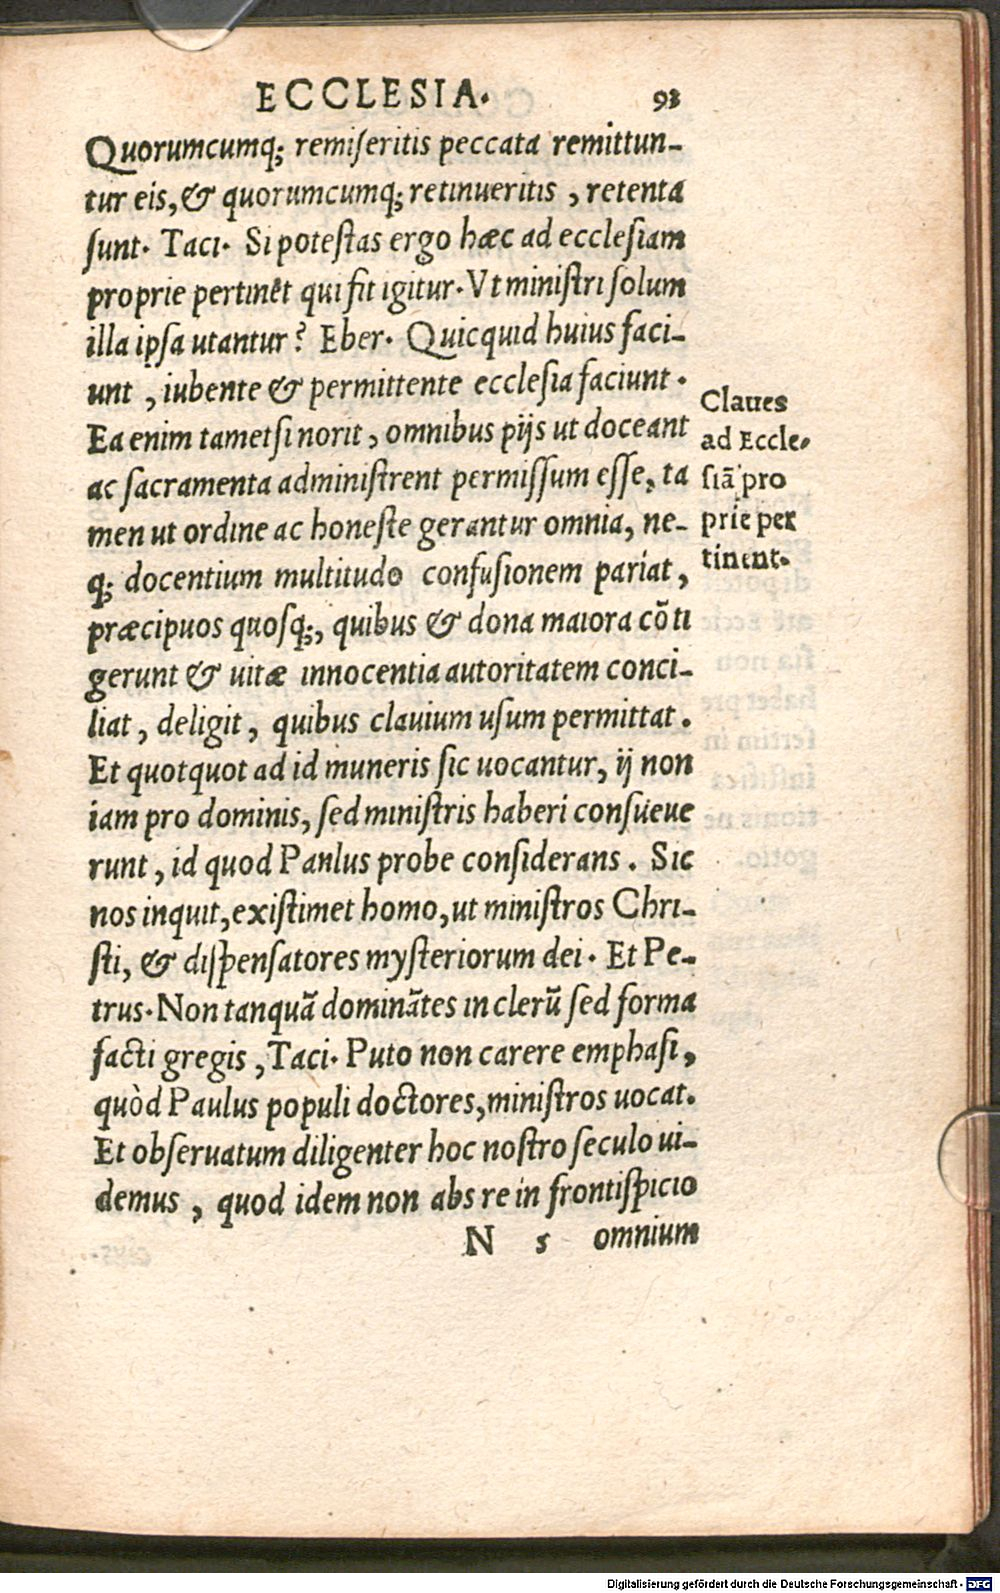 ECCLESIA. 93
Quorumcumq; remiſeritis peccata remittun-
tur eis, & quorumcumq; retinueritis, retenta
ſunt. Taci. Si poteſtas ergo hæc ad eccleſiam
proprie pertinẽt qui fit igitur. Vt miniſtri ſolum
illa ipſa utantur? Eber. Quicquid huius faci-
unt, iubente & permittente eccleſia faciunt.
Ea enim tametſi norit, omnibus pijs ut doceant
ac ſacramenta adminiſtrent permiſſum eſſe, ta
men ut ordine ac honeſte gerantur omnia, ne-
q; docentium multitudo confuſionem pariat,
præcipuos quoſq;, quibus & dona maiora cõti
gerunt & uitæ innocentia autoritatem conci-
liat, deligit, quibus clauium uſum permittat.
Et quotquot ad id muneris ſic uocantur, ij non
iam pro dominis, ſed miniſtris haberi conſueue
runt, id quod Paulus probe conſiderans. Sic
nos inquit, exiſtimet homo, ut miniſtros Chri-
ſti, & diſpenſatores myſteriorum dei. Et Pe-
trus. Non tanquã dominãtes in clerũ ſed forma
facti gregis, Taci. Puto non carere emphaſi,
quòd Paulus populi doctores, miniſtros uocat.
Et obſeruatum diligenter hoc noſtro ſeculo ui-
demus, quod idem non abs re in frontiſpicio
N 5 omnium
Claues
ad Eccle-
ſiã pro
prie per
tinent.
Digitalisierung gefördert durch die Deutsche Forschungsgemeinschaft - DFG